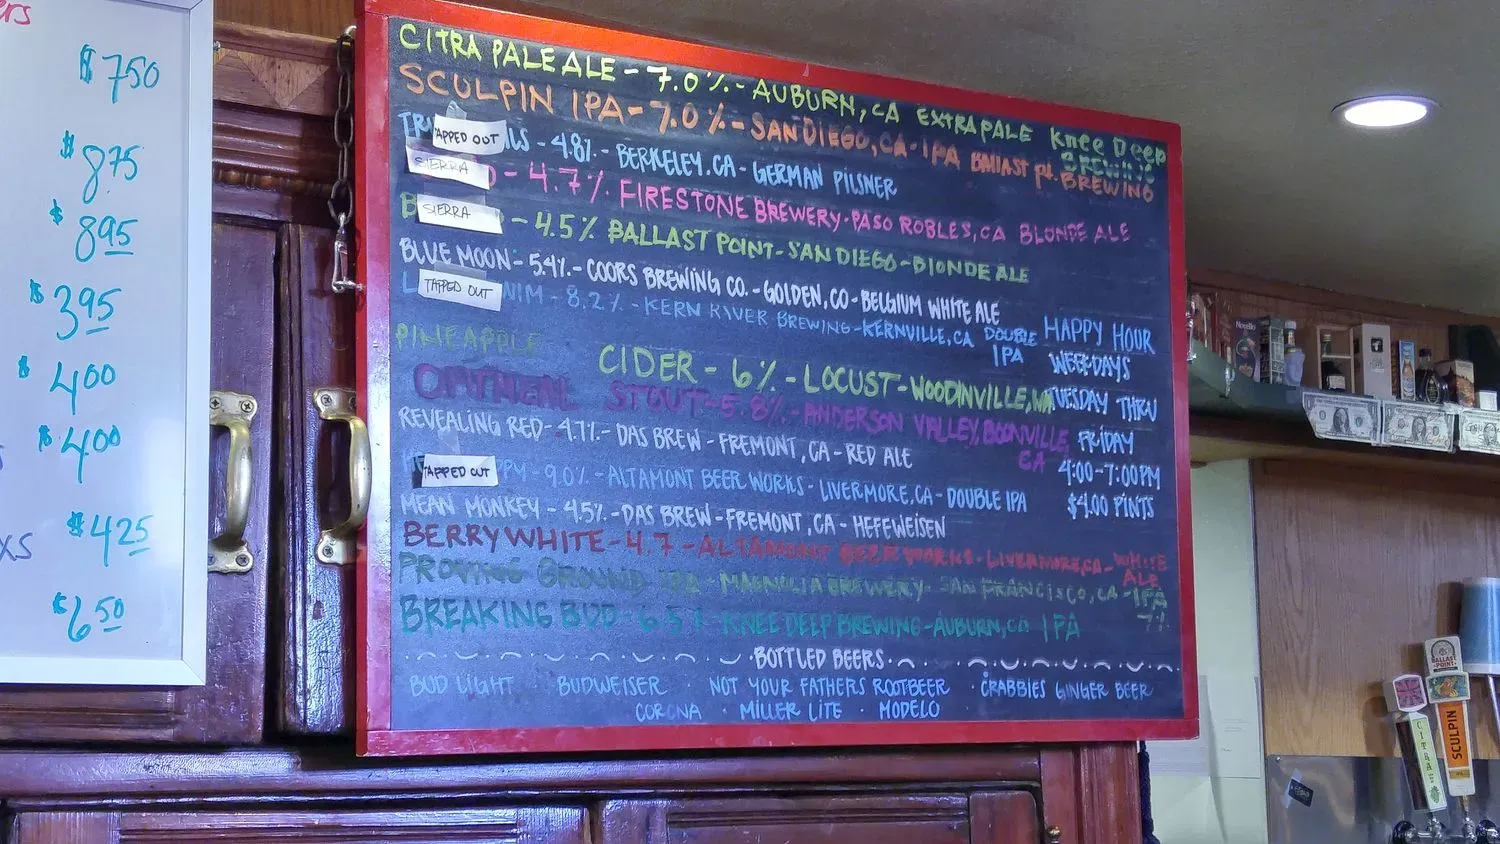 $750
$875
$895
$395
$400
$400
$425
$650
CITRA PALE ALE - 7.0% - AUBURN, CA EXTRA PALE Knee Deep BREWING
SCULPIN IPA - 7.0% - SAN DIEGO, CA - IPA BALLAST Pt. BREWING
TAPPED OUT - 4.8% - BERKELEY, CA - GERMAN PILSNER
SIERRA - 4.7% FIRESTONE BREWERY - PASO ROBLES, CA BLONDE ALE
SIERRA - 4.5% BALLAST POINT - SAN DIEGO - BLONDE ALE
BLUE MOON - 5.4% - COORS BREWING CO. - GOLDEN, CO - BELGIUM WHITE ALE
TAPPED OUT - 8.2% - KERN RIVER BREWING - KERNVILLE, CA DOUBLE IPA
PINEAPPLE CIDER - 6% - LOCUST - WOODINVILLE, WA
OATMEAL STOUT - 5.8% - ANDERSON VALLEY, BOONVILLE, CA
REVEALING RED - 4.7% - DAS BREW - FREMONT, CA - RED ALE
TAPPED OUT - 9.0% - ALTAMONT BEER WORKS - LIVERMORE, CA - DOUBLE IPA
MEAN MONKEY - 4.5% - DAS BREW - FREMONT, CA - HEFEWEISEN
BERRY WHITE - 4.7 - ALTAMONT BEER WORKS - LIVERMORE, CA - WHITE ALE
PROVING GROUND IPA - MAGNOLIA BREWERY - SAN FRANCISCO, CA - IPA 7%
BREAKING BUD - 6.5% KNEE DEEP BREWING - AUBURN, CA IPA
HAPPY HOUR
WEEKDAYS
TUESDAY THRU
FRIDAY
4:00-7:00PM
$4.00 PINTS
BOTTLED BEERS
BUD LIGHT · BUDWEISER · NOT YOUR FATHERS ROOTBEER · CRABBIES GINGER BEER
CORONA · MILLER LITE · MODELO
BALLAST POINT
CITRA
SCULPIN